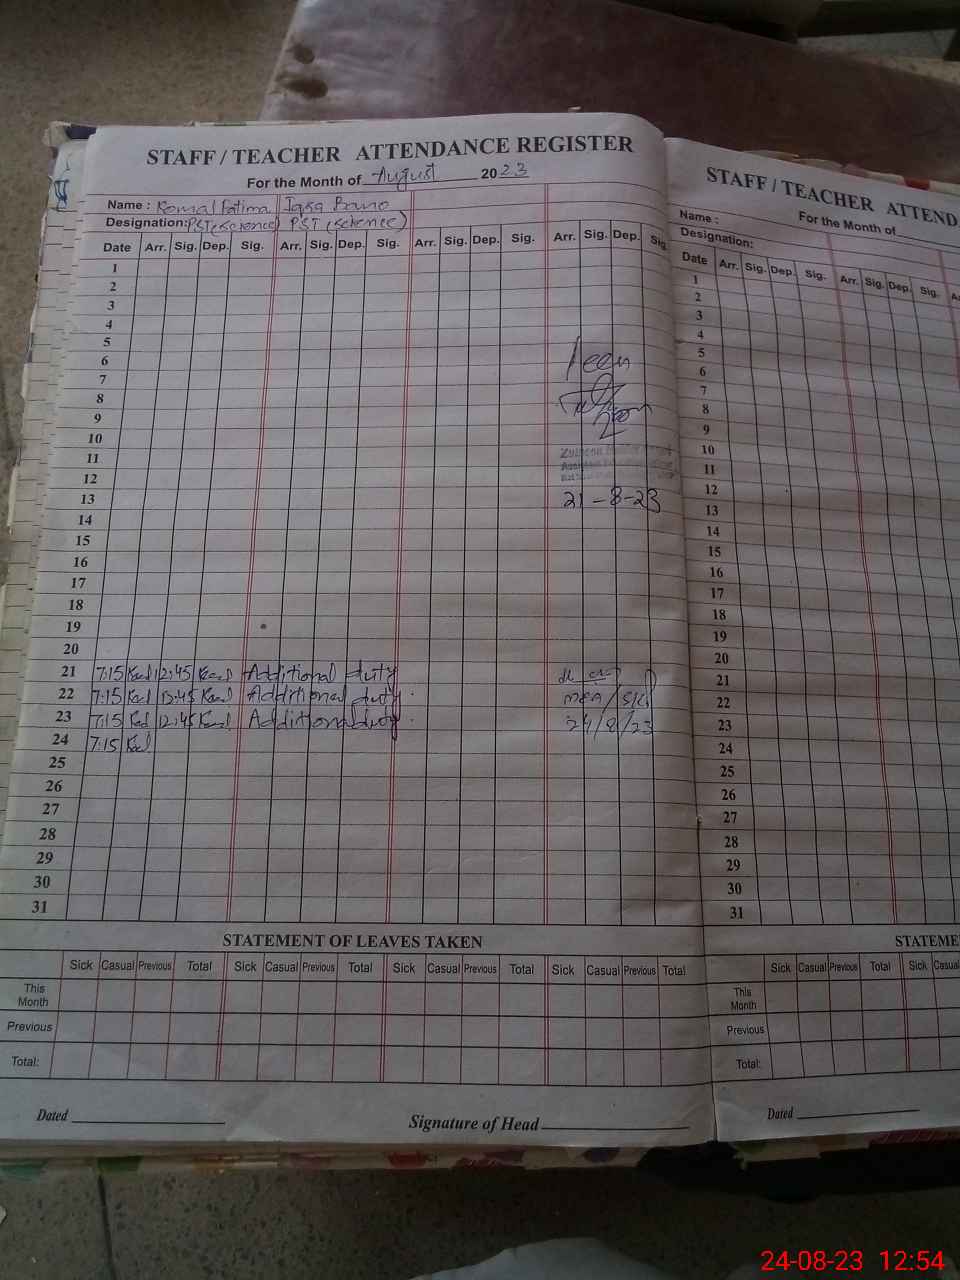 STAFF / TEACHER ATTENDANCE REGISTER
For the Month of August 2023
Name : Komal Fatima Iqsa Bano
Designation: PST (science) PST (science)
Date Arr. Sig. Dep. Sig. Arr. Sig. Dep. Sig. Arr. Sig. Dep. Sig. Arr. Sig. Dep. Sig.
1
2
3
4
5
6
7
8
9
10
11
12
13 21-8-23
14
15
16
17
18
19
20
21 7:15 12:45 Additional duty
22 7:15 Additional duty. MEA
23 7:15 12:45 Additional duty. 24/8/23
24 7:15
25
26
27
28
29
30
31
STATEMENT OF LEAVES TAKEN
Sick Casual Previous Total Sick Casual Previous Total Sick Casual Previous Total Sick Casual Previous Total
This Month
Previous
Total:
Dated Signature of Head
STAFF / TEACHER ATTEND
For the Month of
Name :
Designation:
Date Arr. Sig. Dep. Sig. Arr. Sig. Dep. Sig.
1
2
3
4
5
6
7
8
9
10
11
12
13
14
15
16
17
18
19
20
21
22
23
24
25
26
27
28
29
30
31
STATEME
Sick Casual Previous Total Sick Casual
This Month
Previous
Total:
Dated
24-08-23 12:54